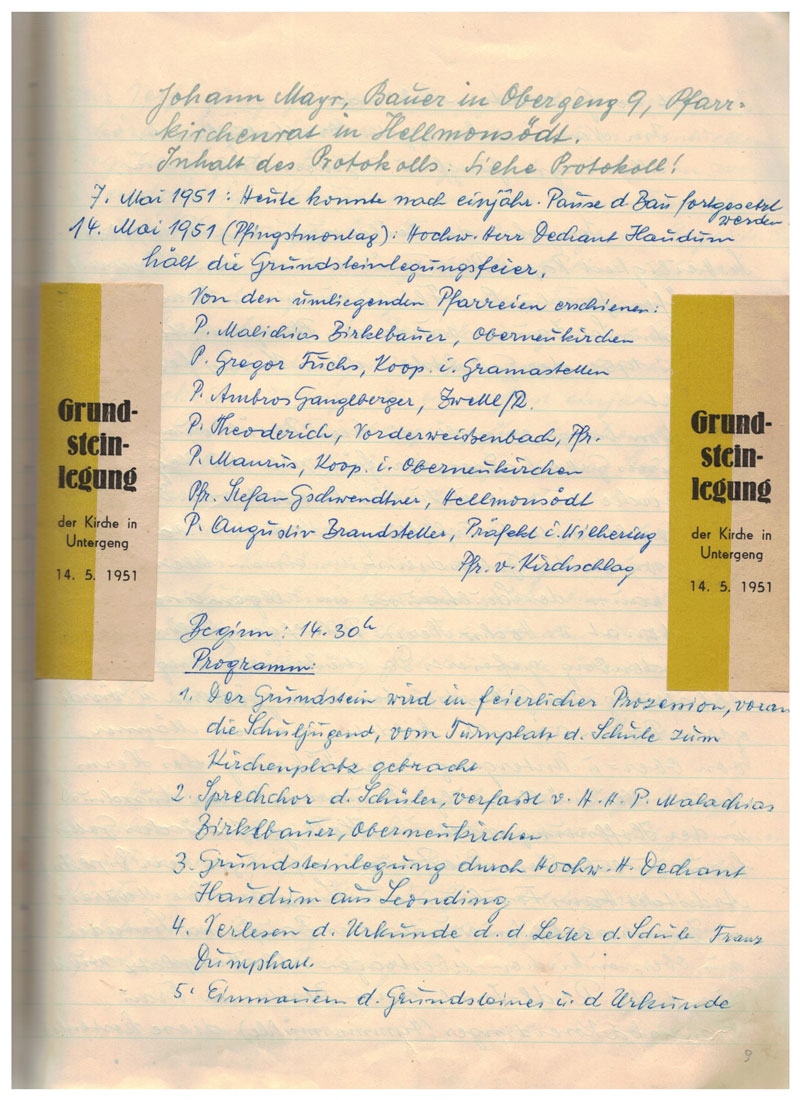 Johann Mayr, Bauer in Obergeng 9, Pfarr-
kirchenrat in Hellmonsödt.
Inhalt des Protokolls: Siehe Protokoll!
7. Mai 1951: Heute konnte nach einjähr. Pause d. Bau fortgesetzt
werden.
14. Mai 1951 (Pfingstmontag): Hochw. Herr Dechant Haudum
hält die Grundsteinlegungsfeier.
Von den umliegenden Pfarreien erschienen:
P. Malichias Birklbauer, Oberneukirchen
P. Gregor Fuchs, Koop. i. Gramastetten
P. Ambros Ganglberger, Zwettl/R.
P. Theoderich, Vorderweißenbach, Pfr.
P. Maurus, Koop. i. Oberneukirchen
Pfr. Stefan Gschwendtner, Hellmonsödt
P. Augustin Brandstetter, Präfekt i. Wilhering
Pfr. v. Kirchschlag
Grund-
stein-
legung
der Kirche in
Untergeng
14. 5. 1951
Grund-
stein-
legung
der Kirche in
Untergeng
14. 5. 1951
Beginn: 14.30h
Programm:
1. Der Grundstein wird in feierlicher Prozession, voran
die Schuljugend, vom Turnplatz d. Schule zum
Kirchenplatz gebracht
2. Sprechchor d. Schüler, verfaßt v. H. H. P. Malachias
Birklbauer, Oberneukirchen
3. Grundsteinlegung durch Hochw. H. Dechant
Haudum aus Leonding
4. Verlesen d. Urkunde d. d. Leiter d. Schule Franz
Dumphart.
5. Einmauern d. Grundsteines u. d Urkunde
9